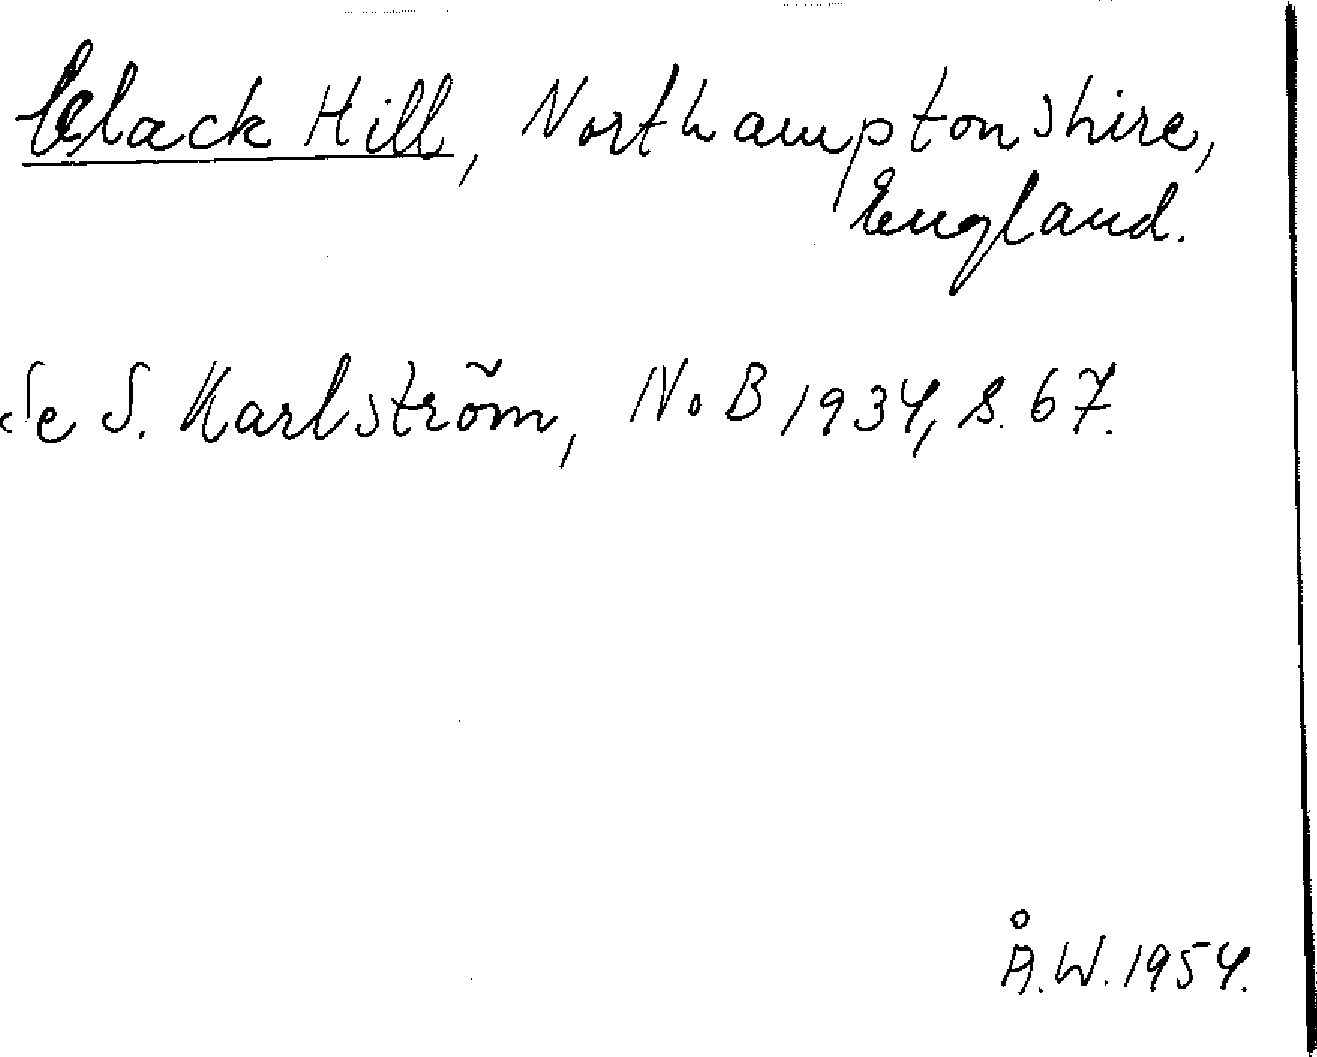 Clack Hill, Northamptonshire,
England.
Se S. Karlström, NoB 1934, s. 67.
Å.W. 1954.